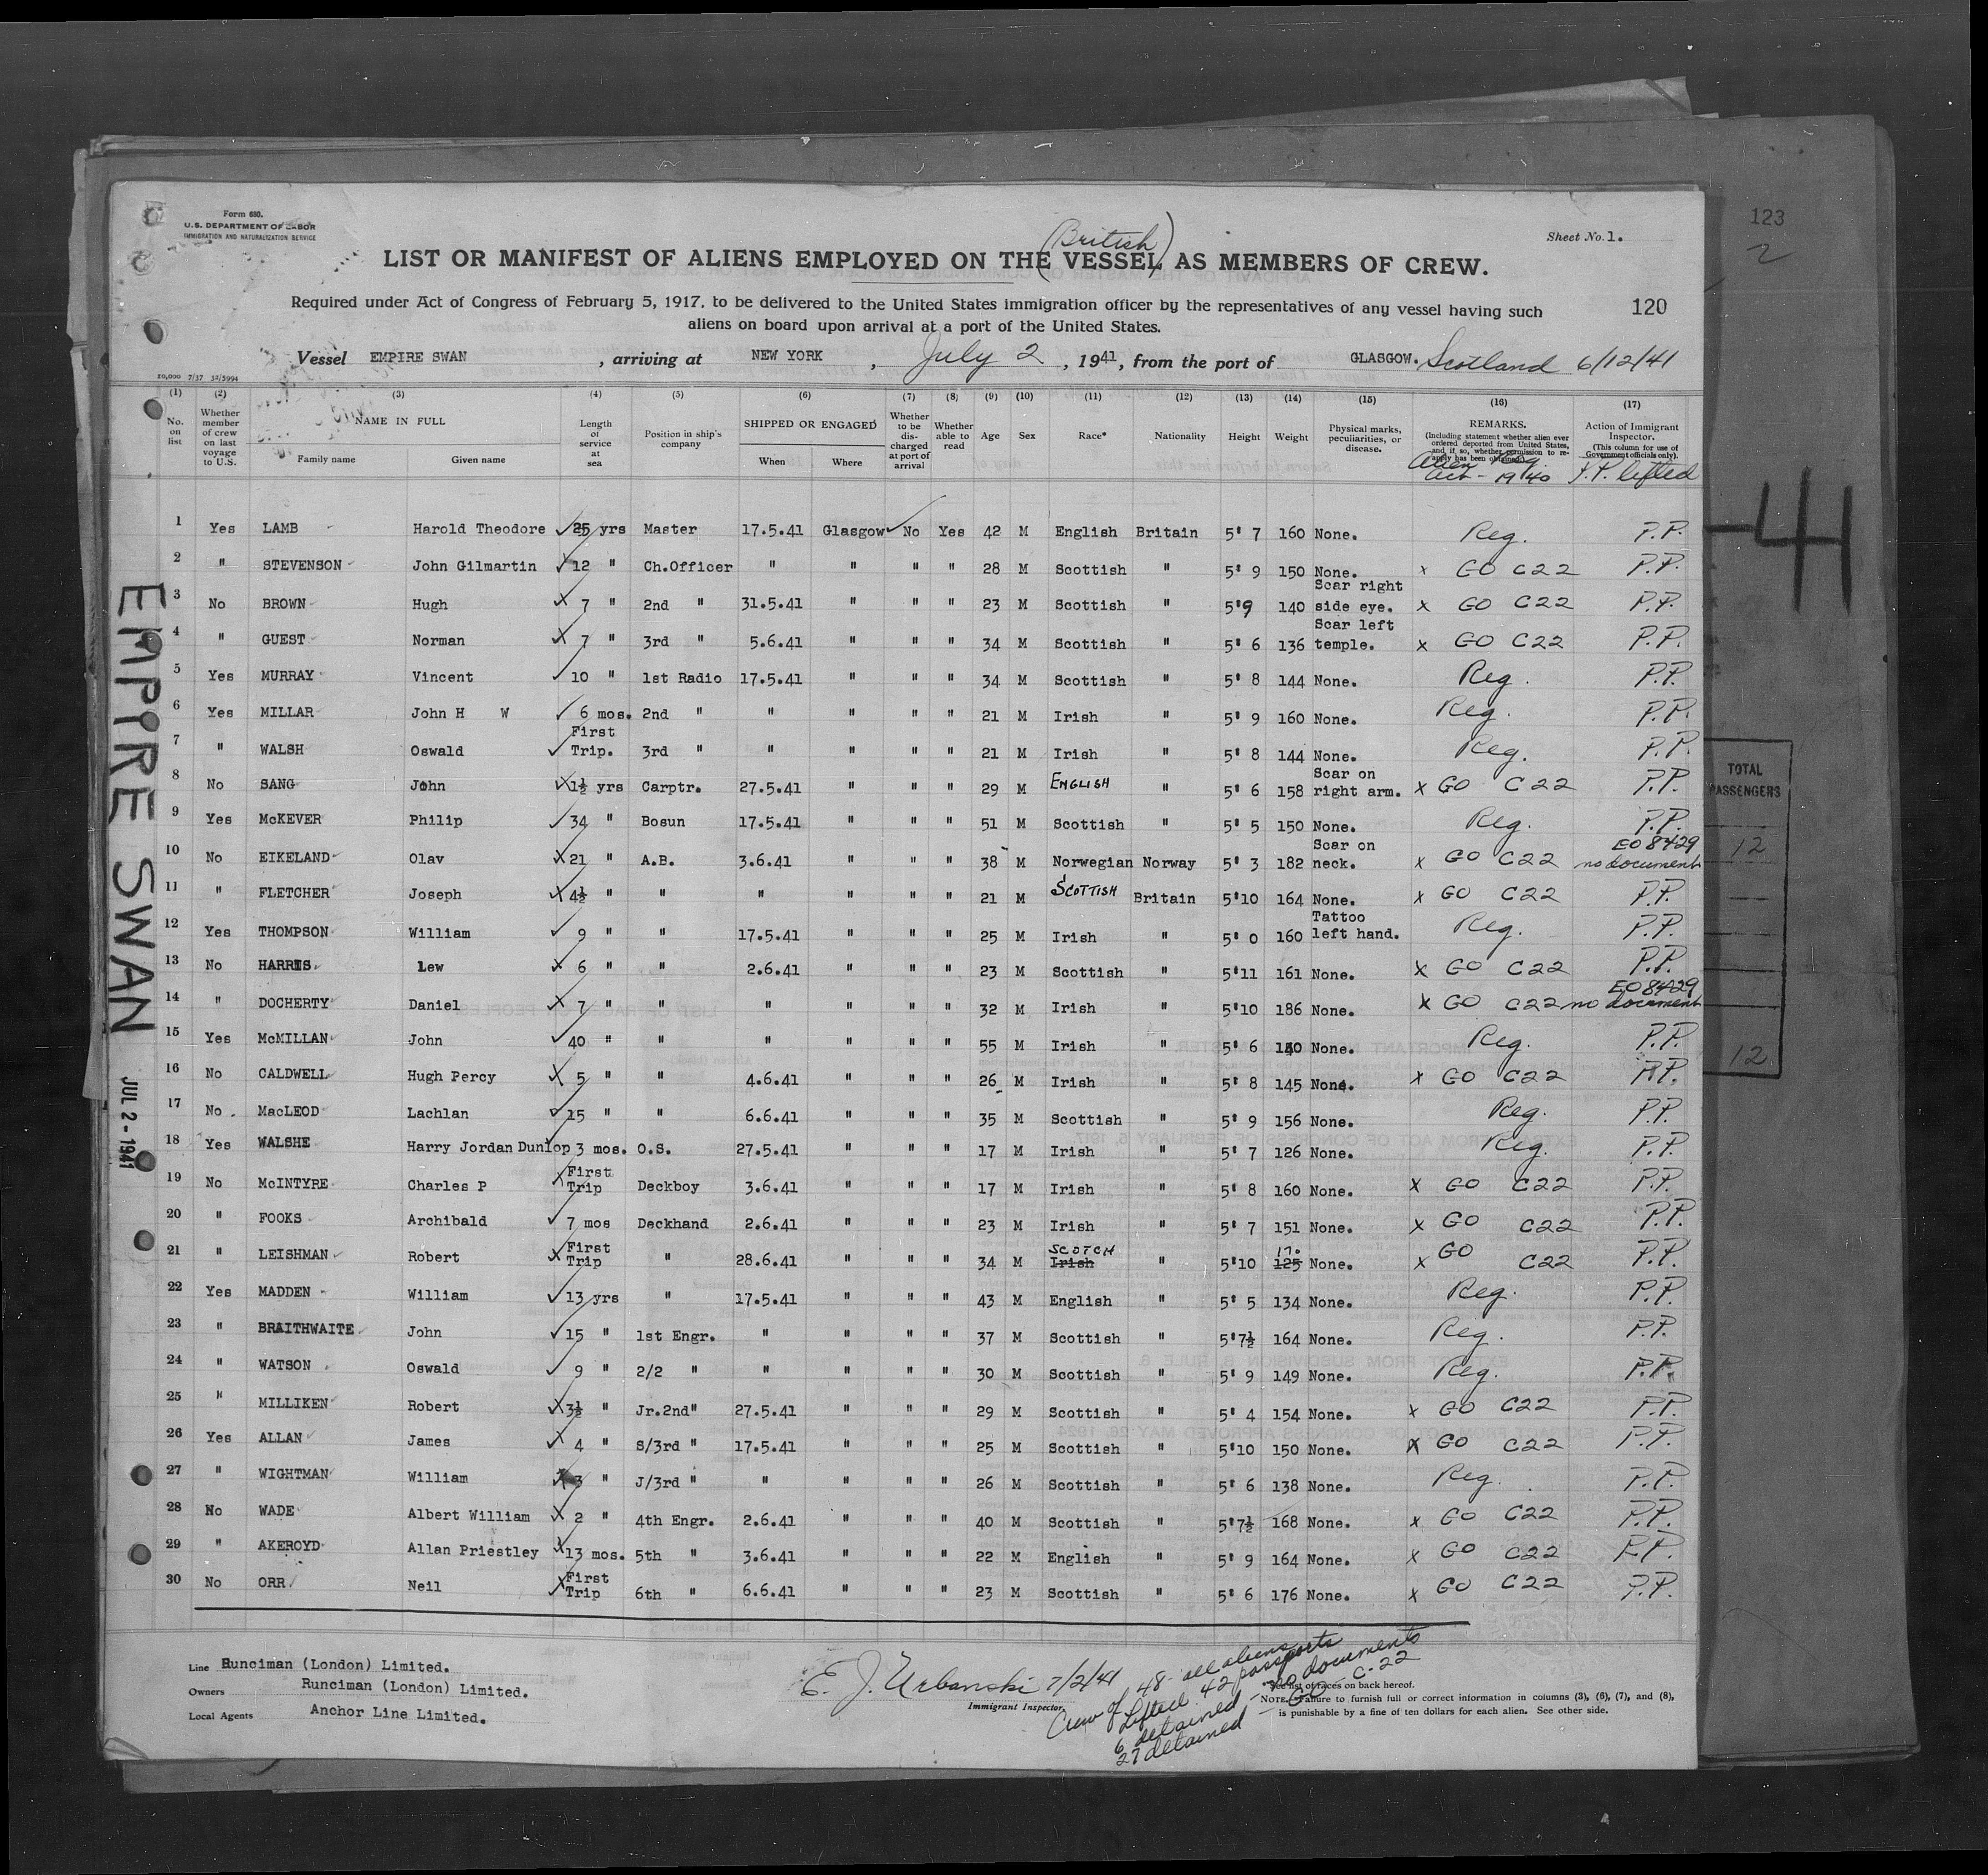 123
2
Form 680.
U.S. DEPARTMENT OF LABOR
IMMIGRATION AND NATURALIZATION SERVICE
Sheet No. 1.
(British)
LIST OR MANIFEST OF ALIENS EMPLOYED ON THE VESSEL AS MEMBERS OF CREW.
Required under Act of Congress of February 5, 1917, to be delivered to the United States immigration officer by the representatives of any vessel having such
aliens on board upon arrival at a port of the United States.
120
Vessel EMPIRE SWAN, arriving at NEW YORK, July 2, 1941, from the port of GLASGOW. Scotland 6/12/41
10,000 7/37 32/5994
(1) (2) (3) (4) (5) (6) (7) (8) (9) (10) (11) (12) (13) (14) (15) (16) (17)
No. on list | Whether member of crew on last voyage to U.S. | NAME IN FULL Family name Given name | Length of service at sea | Position in ship's company | SHIPPED OR ENGAGED When Where | Whether to be discharged at port of arrival | Whether able to read | Age | Sex | Race* | Nationality | Height | Weight | Physical marks, peculiarities, or disease. | REMARKS. (Including statement whether alien ever ordered deported from United States, and if so, whether permission to re-apply has been obtained.) | Action of Immigrant Inspector. (This column for use of Government officials only).
Alien Reg. Act - 1940 P.P. lifted
1 Yes LAMB Harold Theodore 25 yrs Master 17.5.41 Glasgow No Yes 42 M English Britain 5' 7 160 None. Reg. P.P.
2 " STEVENSON John Gilmartin 12 " Ch.Officer " " " " 28 M Scottish " 5' 9 150 None. x GO C22 P.P.
3 No BROWN Hugh 7 " 2nd " 31.5.41 " " " 23 M Scottish " 5'9 140 Scar right side eye. x GO C22 P.P.
4 " GUEST Norman 7 " 3rd " 5.6.41 " " " 34 M Scottish " 5' 6 136 Scar left temple. x GO C22 P.P.
5 Yes MURRAY Vincent 10 " 1st Radio 17.5.41 " " " 34 M Scottish " 5' 8 144 None. Reg. P.P.
6 Yes MILLAR John H W 6 mos. 2nd " " " " " 21 M Irish " 5' 9 160 None. Reg. P.P.
7 " WALSH Oswald First Trip. 3rd " " " " " 21 M Irish " 5' 8 144 None. Reg. P.P.
8 No SANG John 1½ yrs Carptr. 27.5.41 " " " 29 M ENGLISH " 5' 6 158 Scar on right arm. x GO C22 P.P.
9 Yes McKEVER Philip 34 " Bosun 17.5.41 " " " 51 M Scottish " 5' 5 150 None. Reg. P.P.
10 No EIKELAND Olav 21 " A.B. 3.6.41 " " " 38 M Norwegian Norway 5' 3 182 Scar on neck. x GO C22 EO 8429 no document
11 " FLETCHER Joseph 4½ " " " " " " 21 M SCOTTISH Britain 5'10 164 None. x GO C22 P.P.
12 Yes THOMPSON William 9 " " 17.5.41 " " " 25 M Irish " 5' 0 160 Tattoo left hand. Reg. P.P.
13 No HARRIS Lew 6 " " 2.6.41 " " " 23 M Scottish " 5'11 161 None. x GO C22 P.P.
14 " DOCHERTY Daniel 7 " " " " " " 32 M Irish " 5'10 186 None. x GO C22 EO 8429 no document
15 Yes McMILLAN John 40 " " " " " " 55 M Irish " 5' 6 140 None. Reg. P.P.
16 No CALDWELL Hugh Percy 5 " " 4.6.41 " " " 26 M Irish " 5' 8 145 None. x GO C22 P.P.
17 No. MacLEOD Lachlan 15 " " 6.6.41 " " " 35 M Scottish " 5' 9 156 None. Reg. P.P.
18 Yes WALSHE Harry Jordan Dunlop 3 mos. O.S. 27.5.41 " " " 17 M Irish " 5' 7 126 None. Reg. P.P.
19 No McINTYRE Charles P First Trip Deckboy 3.6.41 " " " 17 M Irish " 5' 8 160 None. x GO C22 P.P.
20 " FOOKS Archibald 7 mos Deckhand 2.6.41 " " " 23 M Irish " 5' 7 151 None. x GO C22 P.P.
21 " LEISHMAN Robert First Trip " 28.6.41 " " " 34 M SCOTCH Irish " 5'10 170 125 None. x GO C22 P.P.
22 Yes MADDEN William 13 yrs " 17.5.41 " " " 43 M English " 5' 5 134 None. Reg. P.P.
23 " BRAITHWAITE John 15 " 1st Engr. " " " " 37 M Scottish " 5'7½ 164 None. Reg. P.P.
24 " WATSON Oswald 9 " 2/2 " " " " " 30 M Scottish " 5' 9 149 None. Reg. P.P.
25 " MILLIKEN Robert 3½ " Jr.2nd" 27.5.41 " " " 29 M Scottish " 5' 4 154 None. x GO C22 P.P.
26 Yes ALLAN James 4 " S/3rd " 17.5.41 " " " 25 M Scottish " 5'10 150 None. x GO C22 P.P.
27 " WIGHTMAN William 3 " J/3rd " " " " " 26 M Scottish " 5' 6 138 None. Reg. P.P.
28 No WADE Albert William 2 " 4th Engr. 2.6.41 " " " 40 M Scottish " 5'7½ 168 None. x GO C22 P.P.
29 " AKEROYD Allan Priestley 13 mos. 5th " 3.6.41 " " " 22 M English " 5' 9 164 None. x GO C22 P.P.
30 No ORR Neil First Trip 6th " 6.6.41 " " " 23 M Scottish " 5' 6 176 None. x GO C22 P.P.
Line Runciman (London) Limited.
Owners Runciman (London) Limited.
Local Agents Anchor Line Limited.
E. J. Urbanski 7/2/41
Immigrant Inspector.
Crew of 48 - all aliens
Lifted 42 passports
6 detained - no documents
27 detained - GO - C-22
See list of races on back hereof.
NOTE.—Failure to furnish full or correct information in columns (3), (6), (7), and (8),
is punishable by a fine of ten dollars for each alien. See other side.
EMPIRE SWAN
JUL 2 - 1941
-41
TOTAL
PASSENGERS
12
12